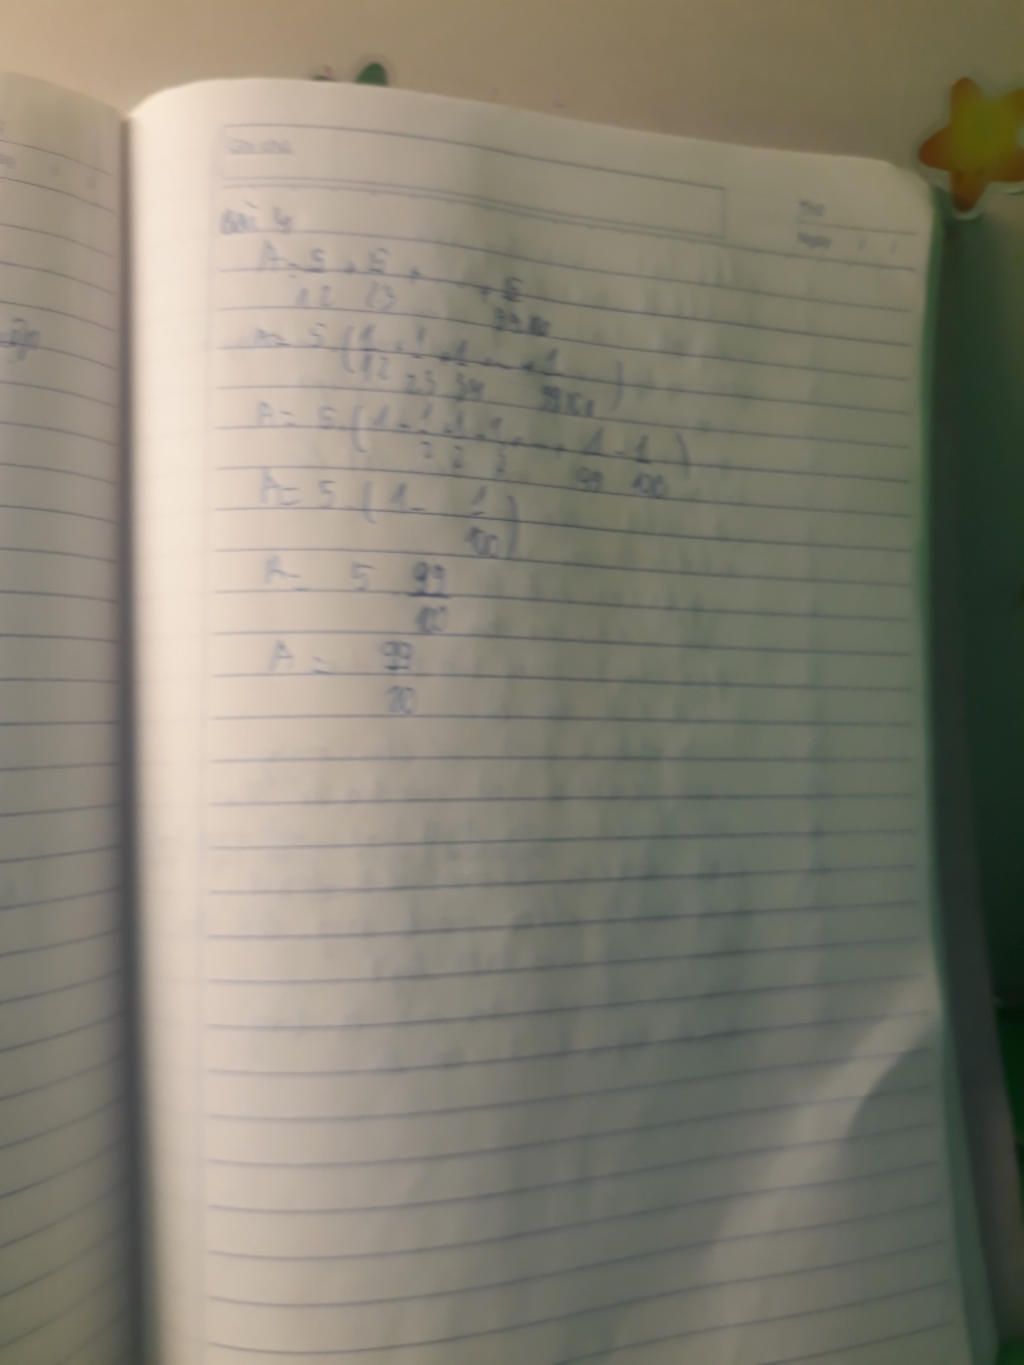 Bài 4
A = 5/1.2 + 5/2.3 + ... + 5/99.100
A = 5.(1/1.2 + 1/2.3 + 1/3.4 ... + 1/99.100)
A = 5.(1 - 1/2 + 1/2 - 1/3 + ... + 1/99 - 1/100)
A = 5.(1 - 1/100)
A = 5 99/100
A = 99/20